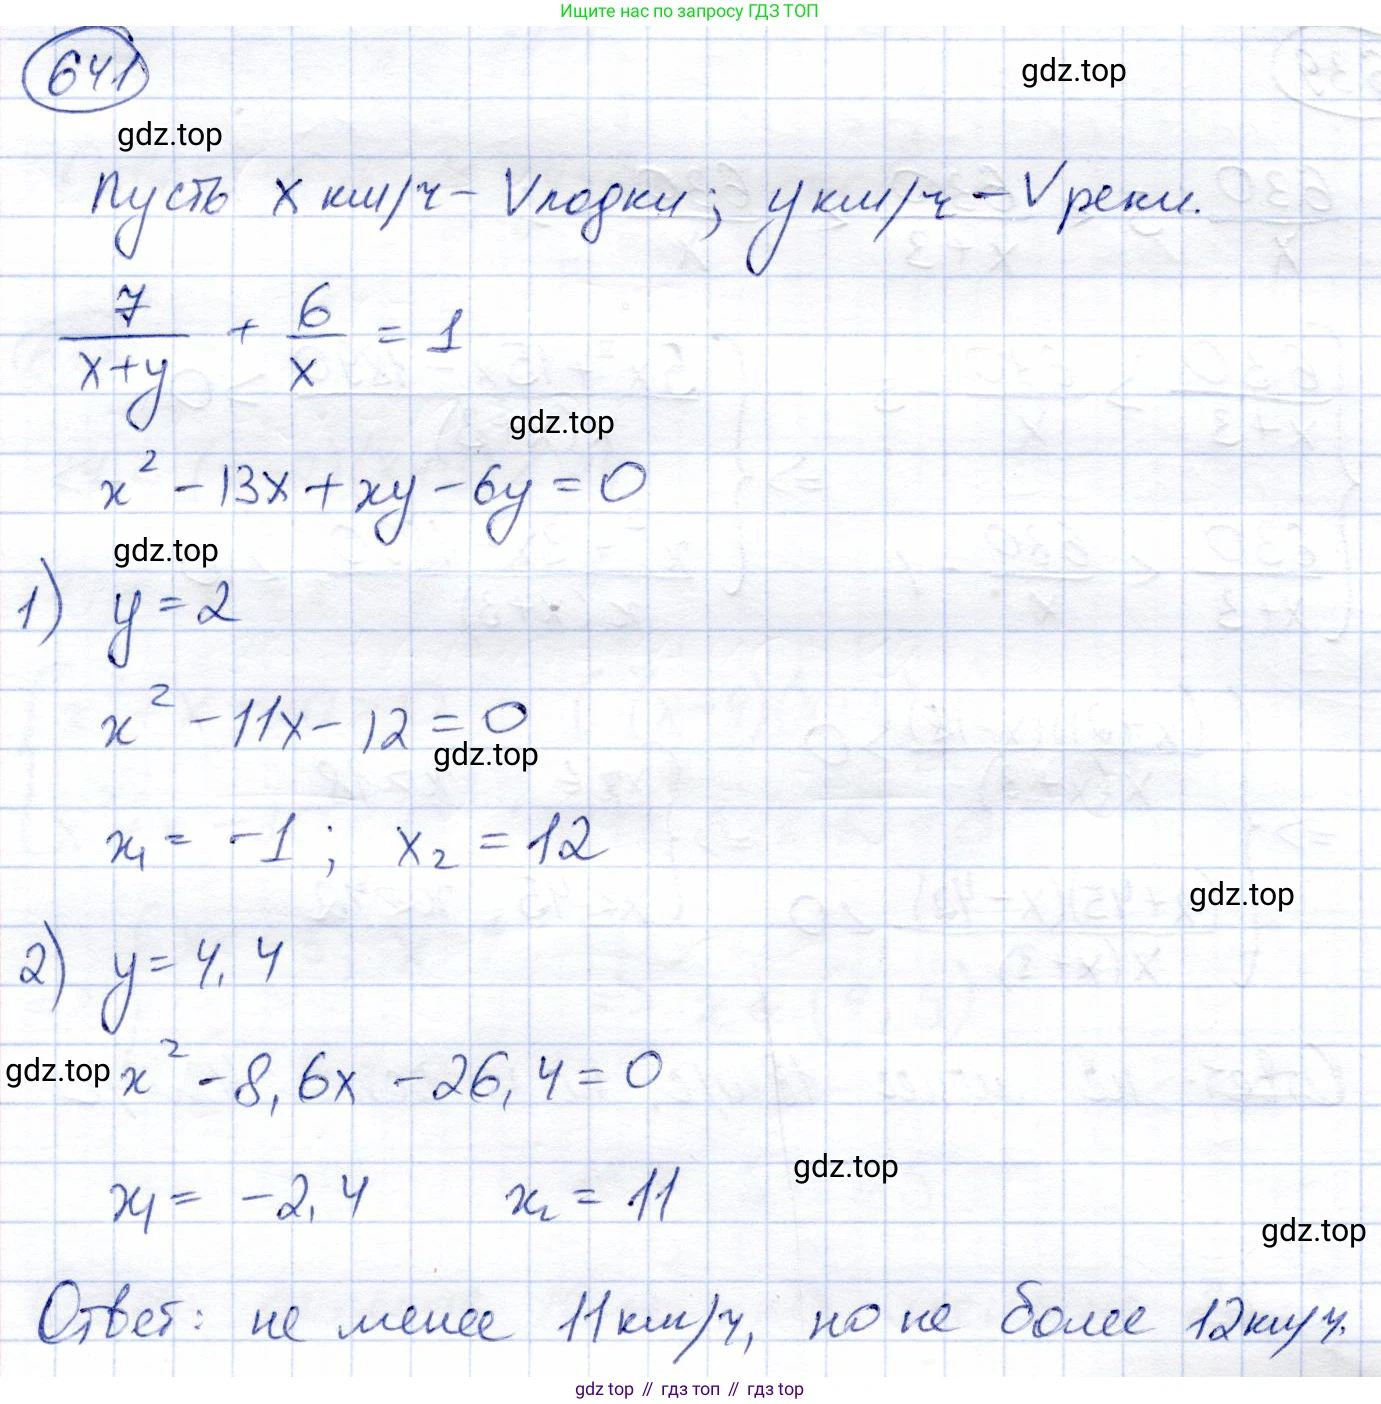 Ищите нас по запросу ГДЗ ТОП
641
gdz.top
gdz.top
Пусть x км/ч – Vлодки; y км/ч – Vреки.
7/(x+y) + 6/x = 1
gdz.top
x² - 13x + xy - 6y = 0
gdz.top
1) y = 2
x² - 11x - 12 = 0
gdz.top
x₁ = -1; x₂ = 12
gdz.top
2) y = 4,4
gdz.top
x² - 8,6x - 26,4 = 0
gdz.top
x₁ = -2,4 x₂ = 11
gdz.top
Ответ: не менее 11км/ч, но не более 12км/ч.
gdz top // гдз топ // гдз top